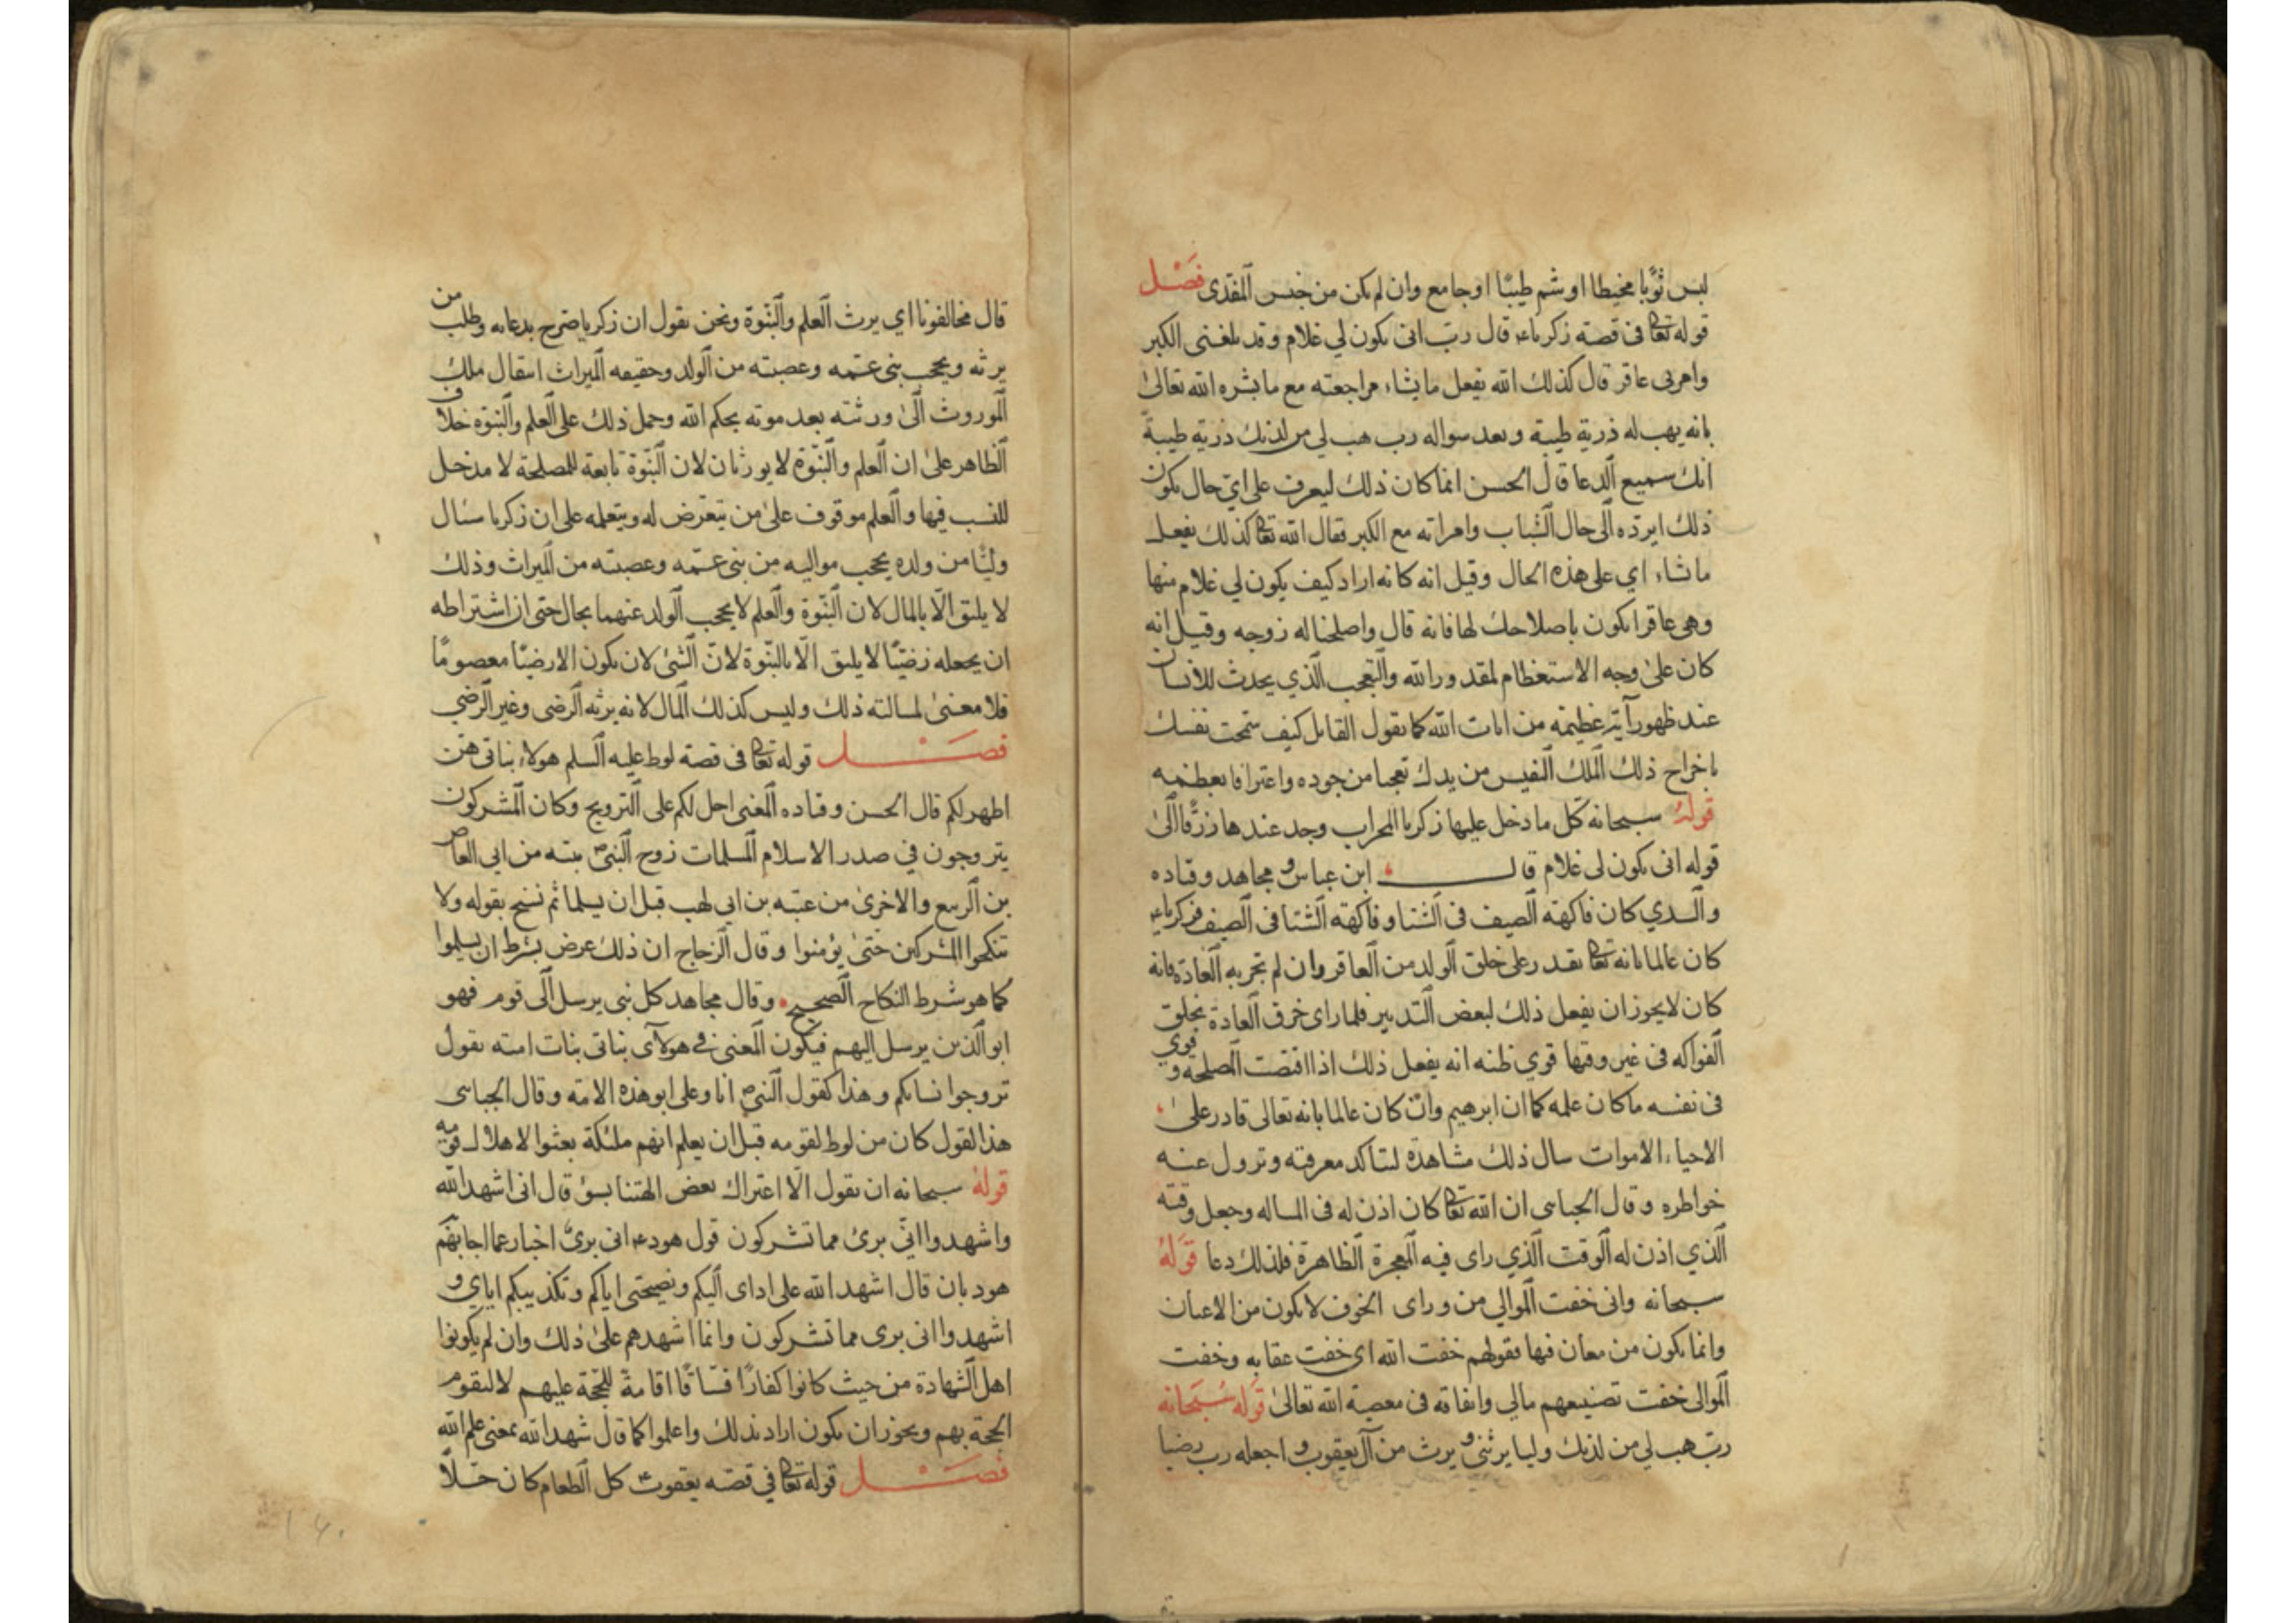 لبس ثوبا مخيطا او شم طيبا او جامع وان لم يكن من جنس المفدى فصل
قوله تعا فى قصة زكرياء قال رب انى يكون لي غلام وقد بلغنى الكبر
وامرتى عاقر قال كذلك الله يفعل ما يشاء مراجعته مع ما بشره الله تعالى
بانه يهب له ذرية طيبة وبعد سواله رب هب لي من لدنك ذرية طيبة
انك سميع الدعا قال الحسن انما كان ذلك ليعرف على اي حال يكون
ذلك ايرده الى حال الشباب وامراته مع الكبر فقال الله تعا كذلك يفعل
ما شاء اي على هذه الحال وقيل انه كانه اراد كيف يكون لي غلام منها
وهى عاقر ايكون باصلاحك لها فانه قال واصلحنا له زوجه وقيل انه
كان على وجه الاستعظام لمقدور الله والتعجب الذي يحدث للانسان
عند ظهور آية عظيمة من ايات الله كما يقول القايل كيف سمحت نفسك
باخراج ذلك الملك النفيس من يدك تعجبا من جوده واعترافا بعظمه
قوله سبحانه كل ما دخل عليها زكريا المحراب وجد عندها رزقا الى
قوله انى يكون لى غلام قال ابن عباس و مجاهد وقتاده
والسدي كان فاكهة الصيف فى الشتا وفاكهة الشتا فى الصيف فزكرياء
كان عالما بانه تعا يقدر على خلق الولد من العاقر وان لم تجر به العادة فانه
كان لا يجوز ان يفعل ذلك لبعض التدبير فلما راى خرق العادة بخلق
الفواكه فى غير وقتها قوي ظنه انه يفعل ذلك اذا اقتضت المصلحه و قوي
فى نفسه ما كان علمه كما ان ابرهيم وان كان عالما بانه تعالى قادر على
الاحياء الاموات سال ذلك مشاهدة لتاكد معرفته وتزول عنه
خواطره وقال الجباى ان الله تعا كان اذن له فى المساله وجعل وقته
الذي اذن له الوقت الذي راى فيه المعجزة الظاهرة فلذلك دعا قوله
سبحانه وانى خفت الموالي من وراى الخوف لا يكون من الاعيان
وانما يكون من معان فيها فقولهم خفت الله اى خفت عقابه وخفت
الموالى خفت تضييعهم مالي وانفاقه فى معصية الله تعالى قوله سبحانه
رب هب لي من لدنك وليا يرثنى و يرث من آل يعقوب و اجعله رب رضيا
قال مخالفونا اي يرث العلم والنبوة ونحن نقول ان زكريا صرح بدعائه وطلب من
يرثه ويحجب بنى عمه وعصبته من الولد وحقيقه الميراث انتقال ملك
الموروث الى ورثته بعد موته بحكم الله وحمل ذلك على العلم والنبوه خلاف
الظاهر على ان العلم والنبوة لا يورثان لان النبوة تابعة للمصلحة لا مدخل
للنسب فيها والعلم موقوف على من يتعرض له ويتعلمه على ان زكريا سئال
وليا من ولده يحجب مواليه من بنى عمه وعصبته من الميراث وذلك
لا يليق الا بالمال لان النبوة والعلم لا يحجب الولد عنهما بحال حتى ان اشتراطه
ان يجعله رضيا لا يليق الا بالنبوة لان الشئ لان يكون الا رضيا معصوما
فلا معنى لمسالته ذلك وليس كذلك المال لانه يرثه الرضى وغير الرضي
فصل قوله تعا فى قصة لوط عليه السلم هولاء بناتى هن
اطهر لكم قال الحسن وقتاده المعنى احل لكم على التزويج وكان المشركون
يتزوجون في صدر الاسلام المسلمات زوج النبى ص بنته من ابي العاص
بن الربيع والاخرى من عتبه بن ابي لهب قبل ان يسلما ثم نسخ بقوله ولا
تنكحوا المشركين حتى يؤمنوا وقال الزجاج ان ذلك عرض بشرط ان يسلموا
كما هو شرط النكاح الصحيح وقال مجاهد كل نبى يرسل الى قوم فهو
ابو الذين يرسل اليهم فيكون المعنى في هولاى بناتى بنات امته يقول
تزوجوا نساءكم وهذا كقول النبى ص انا وعلى ابو هذه الامة وقال الجباى
هذا القول كان من لوط لقومه قبل ان يعلم انهم ملئكة بعثوا لاهلاك قومه
قوله سبحانه ان نقول الا اعتراك بعض الهتنا بسؤ قال انى اشهد الله
واشهدوا انى برئ مما تشركون قول هودء انى برئ اخبار عما اجابهم
هود بان قال اشهد الله على اداى اليكم ونصيحتى اياكم وتكذيبكم اياي و
اشهدوا انى برى مما تشركون وانما اشهدهم على ذلك وان لم يكونوا
اهل الشهادة من حيث كانوا كفارا فساقا اقامة للحجة عليهم لا لتقوم
الحجة بهم ويجوز ان يكون اراد بذلك واعلموا كما قال شهد الله بمعنى علم الله
فصل قوله تعا في قصة يعقوب كل الطعام كان حلا
١٤٠